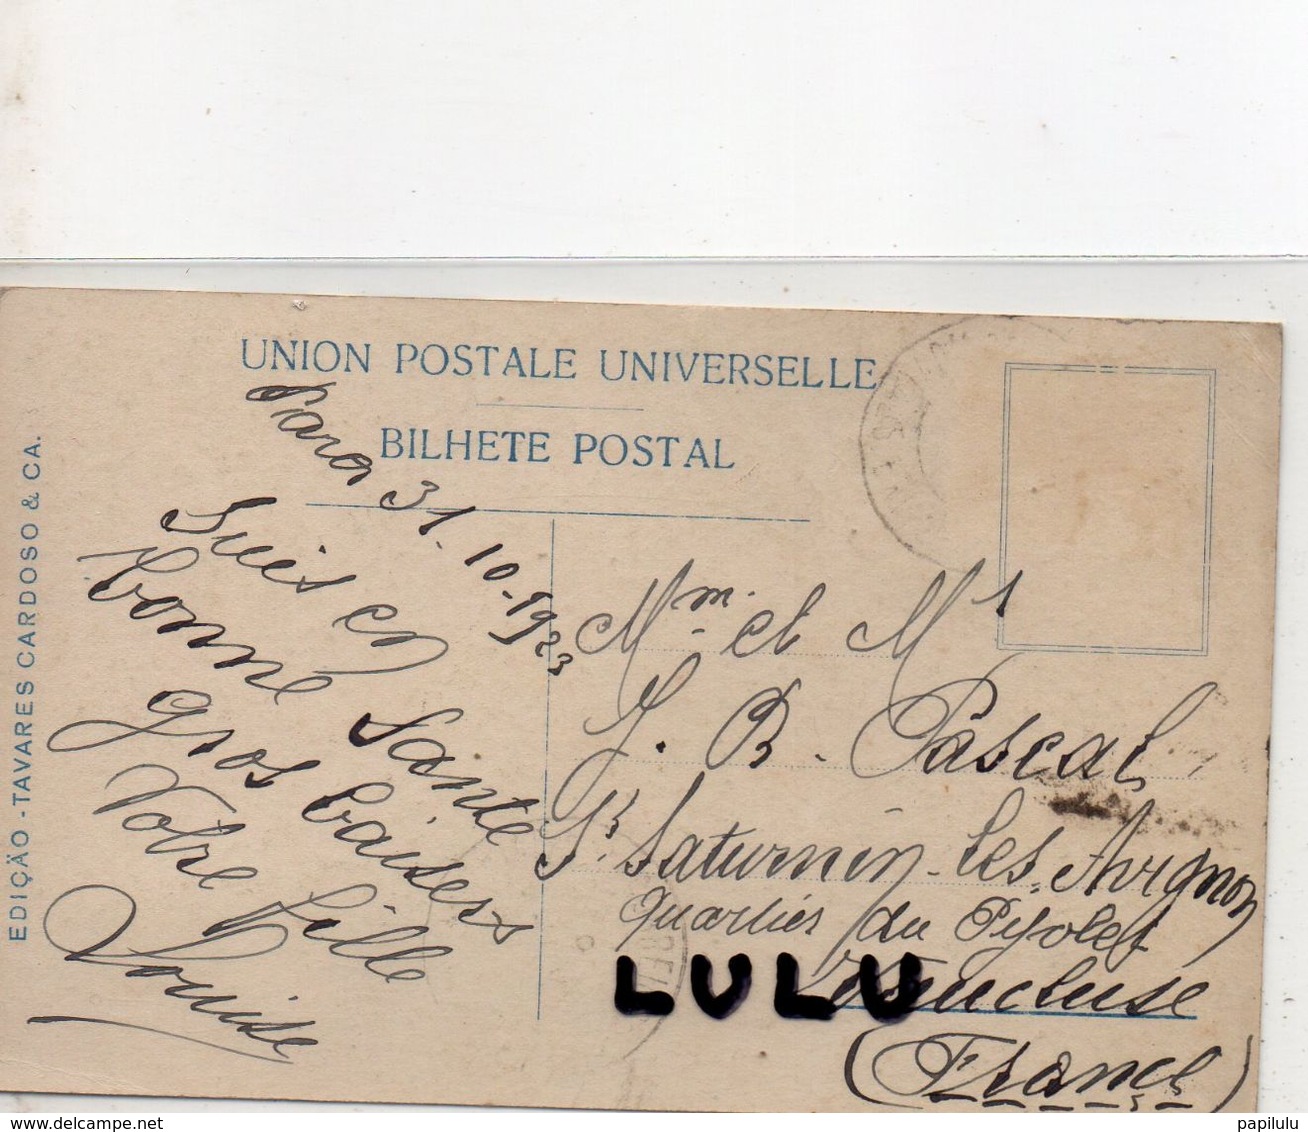 UNION POSTALE UNIVERSELLE
BILHETE POSTAL
EDIÇÃO - TAVARES CARDOSO & CA.
Para 31-10-1923
Suis en
bonne santé
gros baisers
Votre fille
Louise
Mm. et Mr
J. B. Pascal
St. Saturnin-les-Avignon
Quartier du Pyolet
Vaucluse
(France)
LULU
www.delcampe.net
papilulu